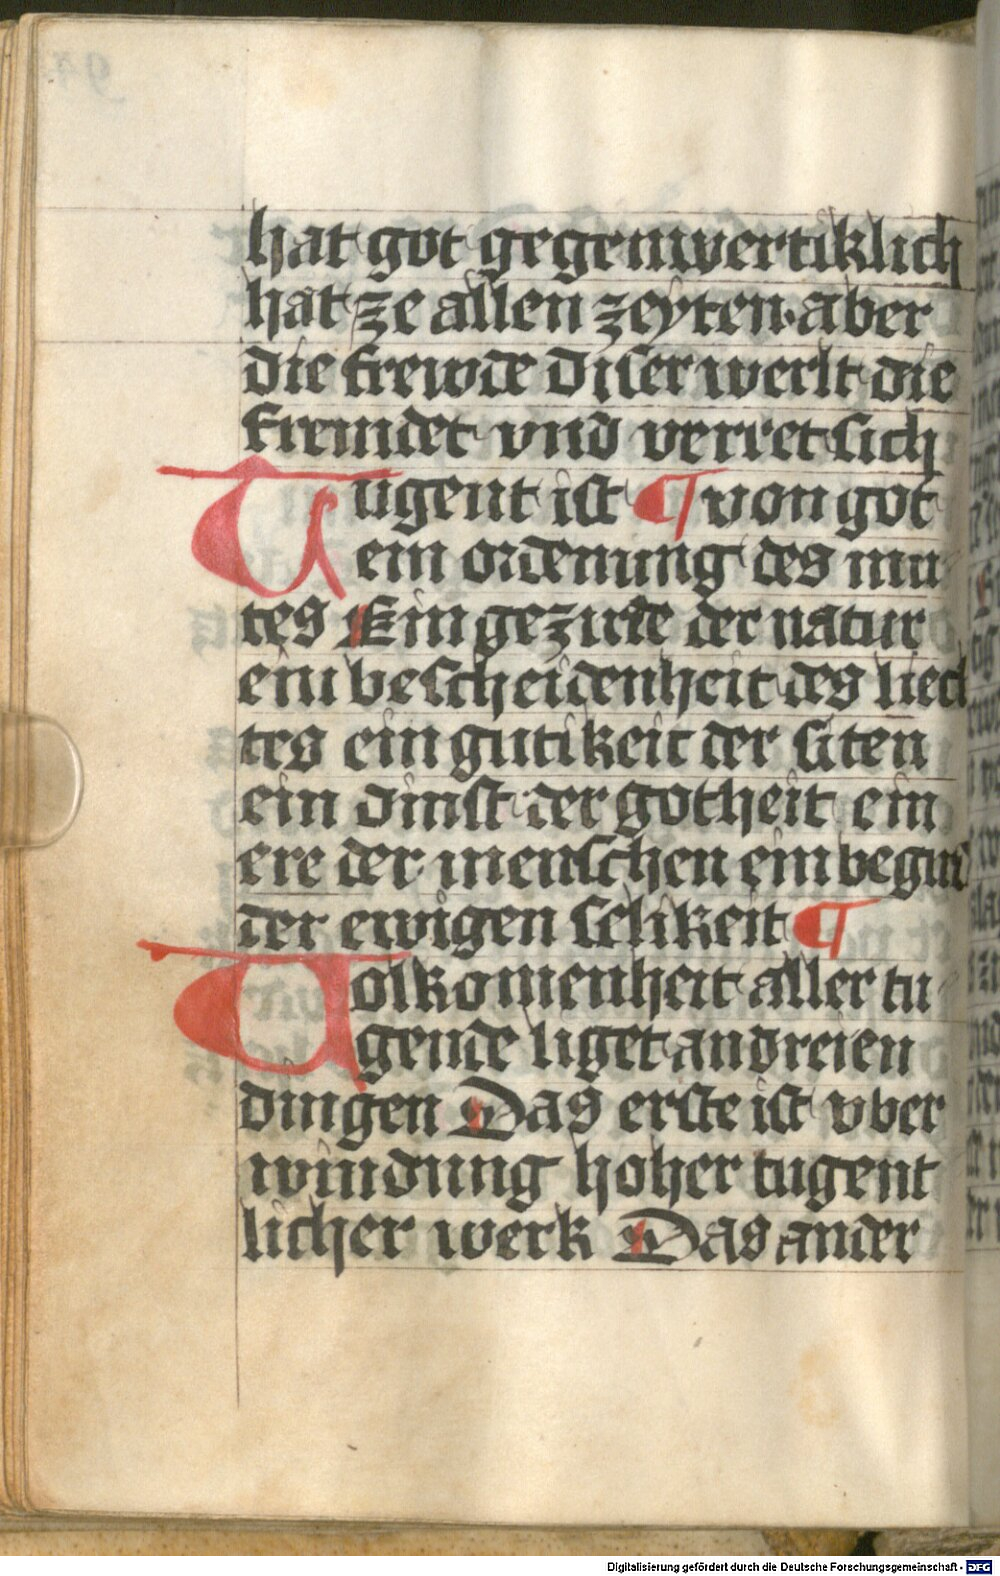 hat got gegenwertiklich
hat ze allen zeyten. aber
die frewde diser werlt die
fremdet vnd verret sich
Tugent ist ¶ von got
ein ordenung des mu
tes Ein gezirde der natur
ein bescheidenheit des liech
tes ein gutikeit der siten
ein dinst der gotheit ein
ere der menschen ein begin
der ewigen selikeit ¶
Uolkomenheit aller tu
gende liget an dreien
dingen Das erste ist vber
windung hoher tugent
licher werk Das ander
Digitalisierung gefördert durch die Deutsche Forschungsgemeinschaft - DFG